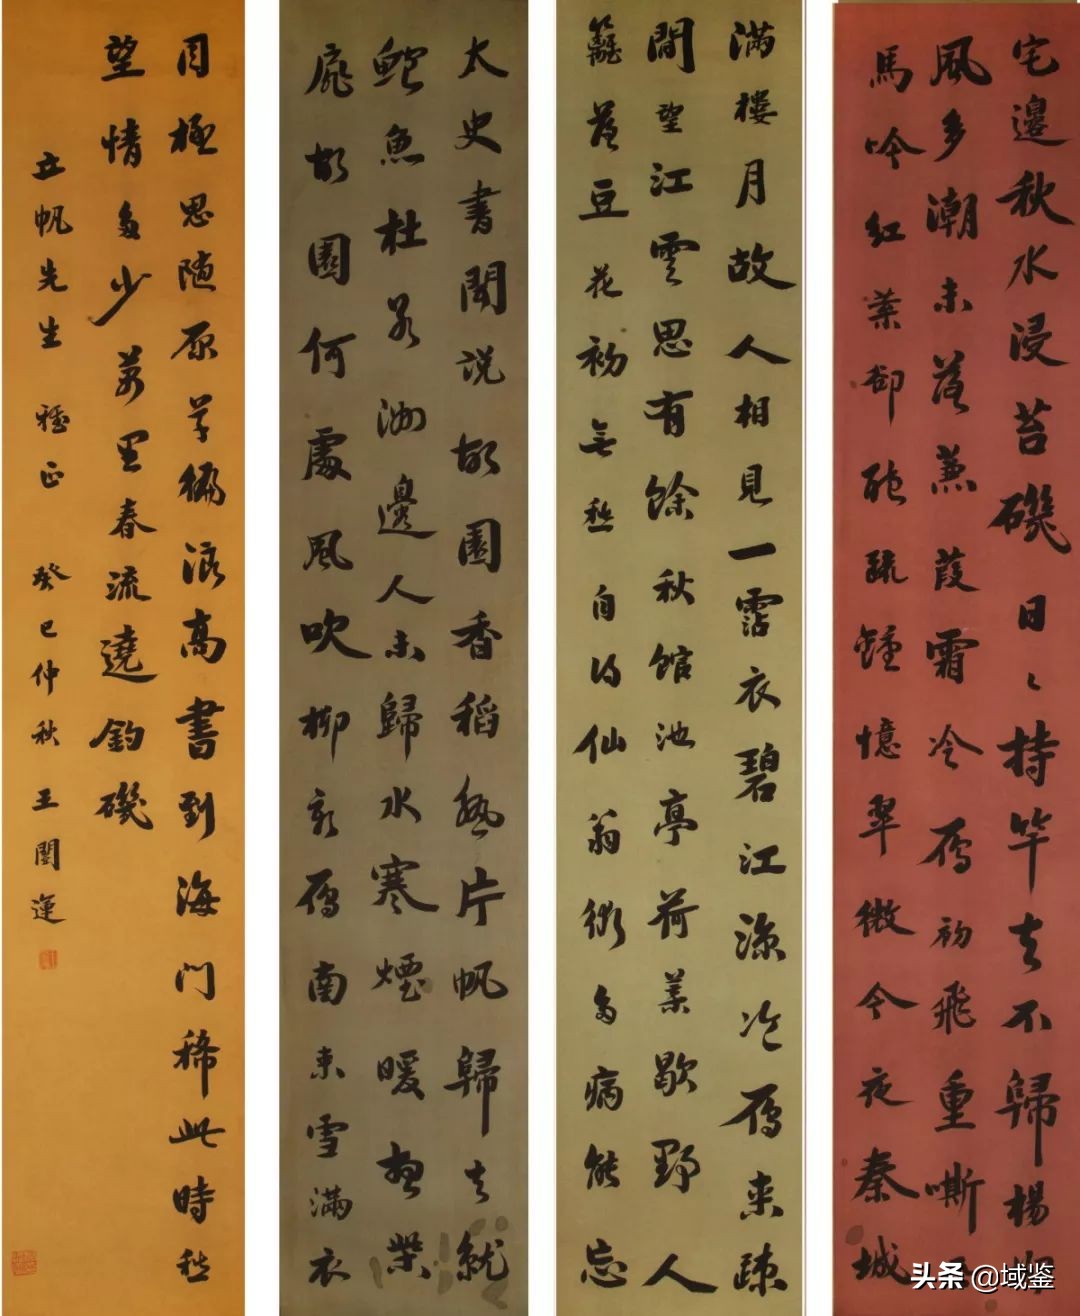 宅邊秋水浸苔磯日〻持竿去不歸楊
風多潮未落蒹葭霜冷雁初飛重嘶
馬吟紅葉却聽疏鐘憶翠微今夜秦城
滿樓月故人相見一霑衣碧江涼冷雁來疎
閒望江雲思有餘秋館池亭荷葉歇野人
籬落豆花初無愁自得仙翁術多病能忘
太史書聞說故園香稻熟片帆歸去就
鱸魚杜若洲邊人未歸水寒煙暖想柴
扉故園何處風吹柳新雁南來雪滿衣
目極思隨原草徧浪高書到海門稀此時愁
望情多少萬里春流遶釣磯
立帆先生 雅正 癸巳仲秋 王闓運
头条 @域鉴